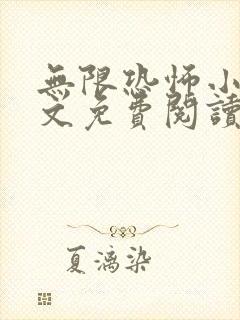 無限恐怖小
文免費閱讀
夏漓染